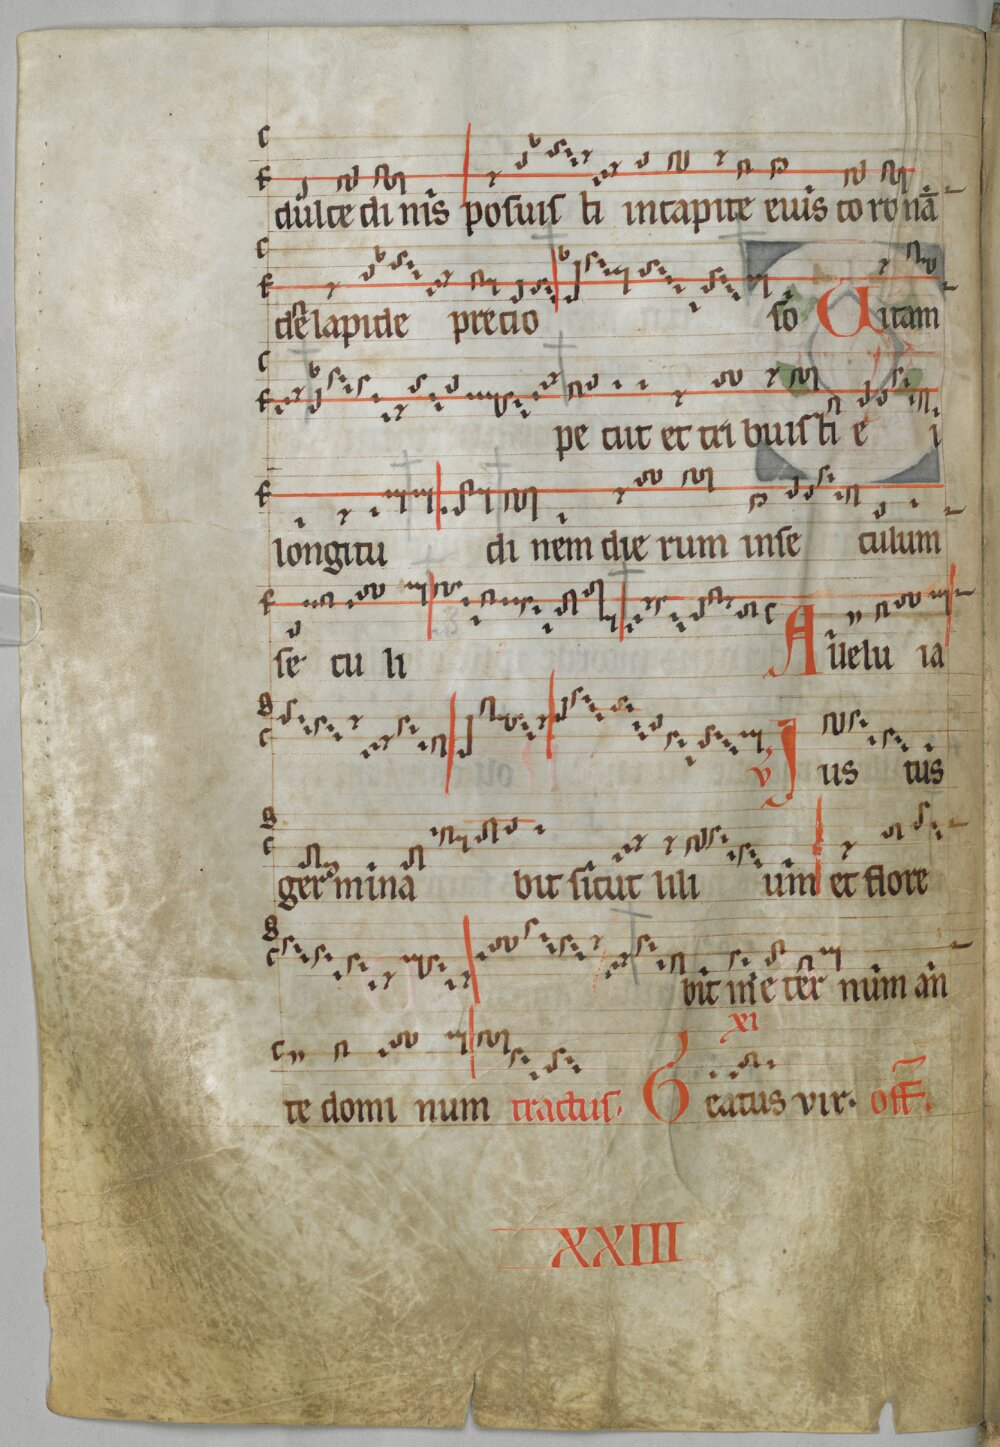 dulce di nis posuis ti in capite eius co ro nā
de lapide precio so Vitam
pe tiit et tri buis ti e i
longitu di nem die rum in se culum
se cu li Alielu ia
v Jus tus
ger mina bit sicut lili um et flore
bit in e ter num an
te domi num tractus. Beatus vir. off.
XI
XXIII